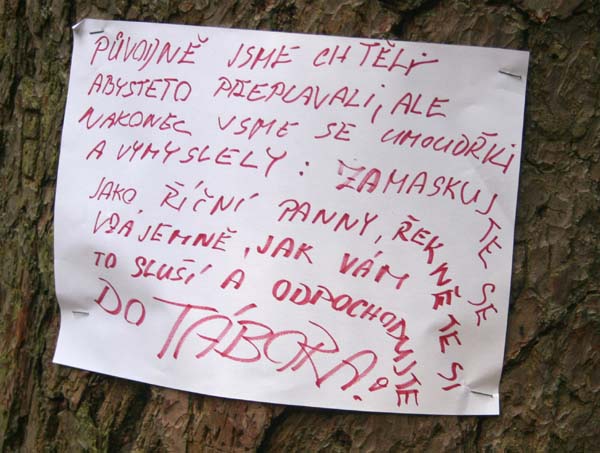 PŮVODNĚ JSME CHTĚLI
ABYSTETO PŘEPLAVALI, ALE
NAKONEC VSME SE UMOUDŘILI
A VYMYSLELY: ZAMASKUJTE SE
JAKO ŘÍČNÍ PANNY, ŘEKNĚTE SI
VZÁJEMNĚ, JAK VÁM
TO SLUŠÍ A ODPOCHODUJTE
DO TÁBORA!